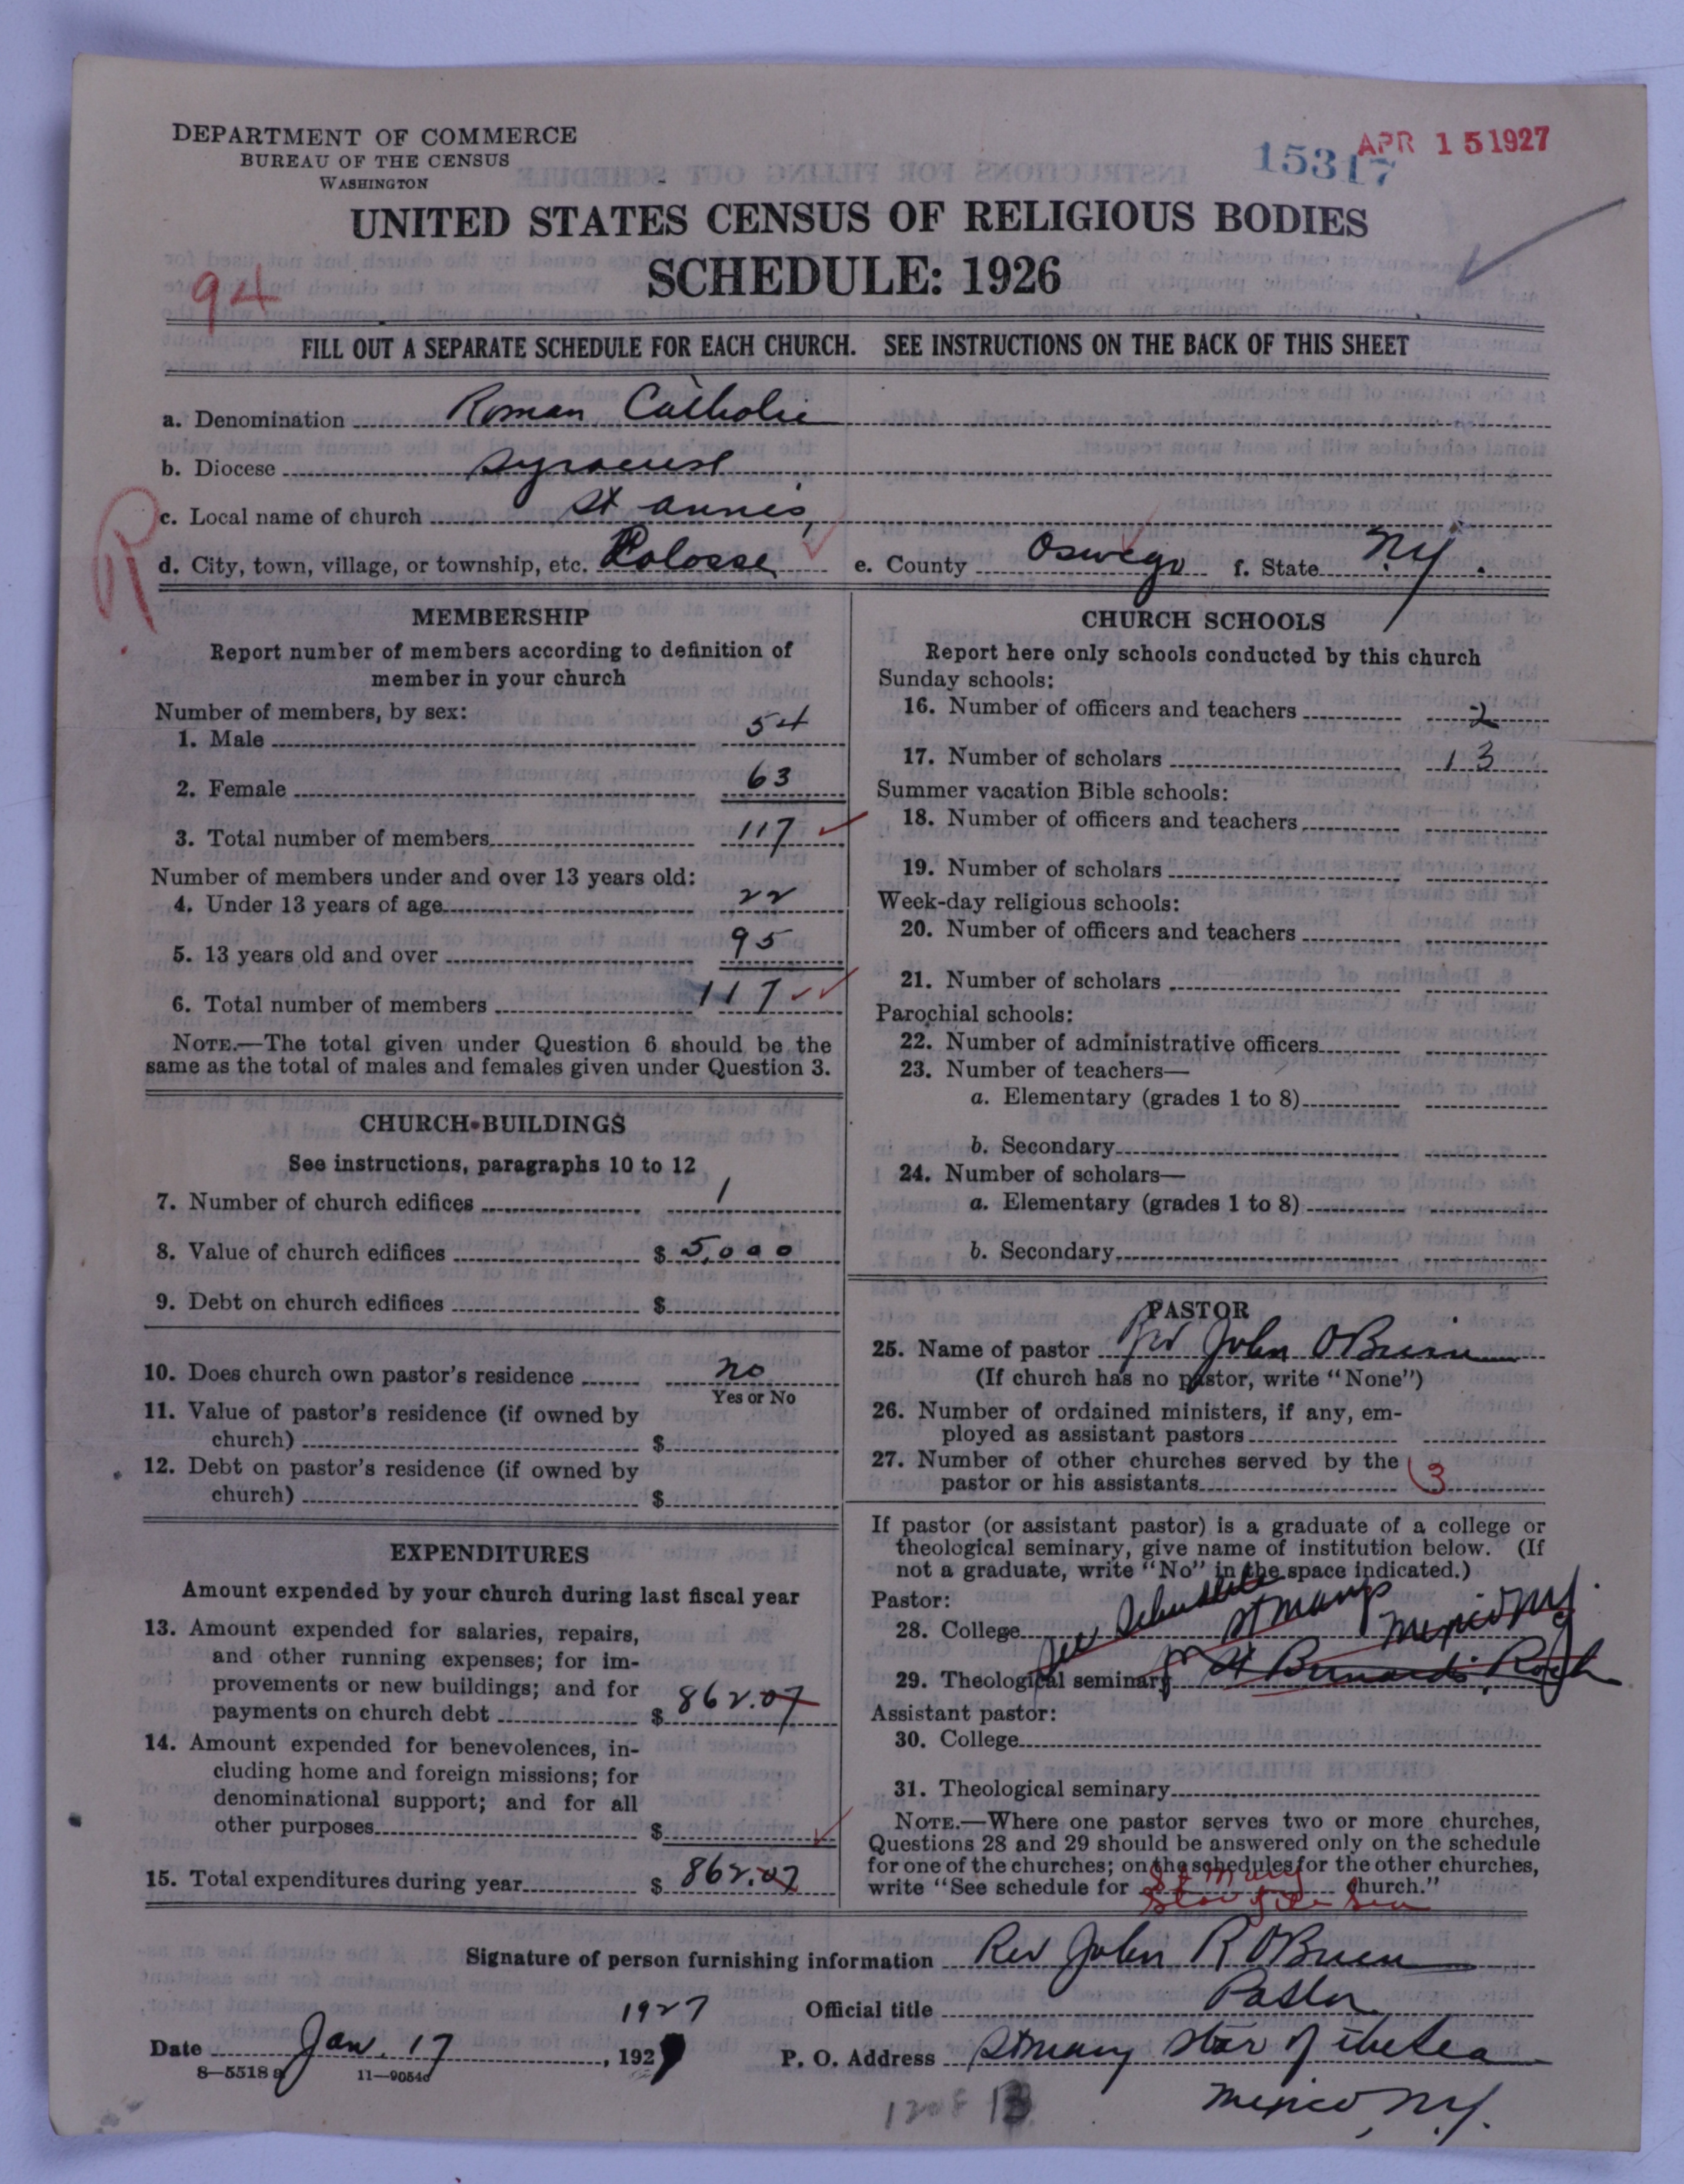 DEPARTMENT OF COMMERCE
BUREAU OF THE CENSUS
WASHINGTON
15317
APR 15 1927
UNITED STATES CENSUS OF RELIGIOUS BODIES
SCHEDULE: 1926
94
FILL OUT A SEPARATE SCHEDULE FOR EACH CHURCH. SEE INSTRUCTIONS ON THE BACK OF THIS SHEET
a. Denomination Roman Catholic
b. Diocese Syracuse
c. Local name of church St Annes,
R
d. City, town, village, or township, etc. Colosse e. County Oswego f. State N.Y.
MEMBERSHIP
Report number of members according to definition of
member in your church
Number of members, by sex:
1. Male 54
2. Female 63
3. Total number of members 117
Number of members under and over 13 years old:
4. Under 13 years of age 22
5. 13 years old and over 95
6. Total number of members 117
NOTE.—The total given under Question 6 should be the
same as the total of males and females given under Question 3.
CHURCH BUILDINGS
See instructions, paragraphs 10 to 12
7. Number of church edifices 1
8. Value of church edifices $ 5,000
9. Debt on church edifices $
10. Does church own pastor's residence no
Yes or No
11. Value of pastor's residence (if owned by
church) $
12. Debt on pastor's residence (if owned by
church) $
EXPENDITURES
Amount expended by your church during last fiscal year
13. Amount expended for salaries, repairs,
and other running expenses; for im-
provements or new buildings; and for
payments on church debt $ 862.07
14. Amount expended for benevolences, in-
cluding home and foreign missions; for
denominational support; and for all
other purposes $
15. Total expenditures during year $ 862.07
CHURCH SCHOOLS
Report here only schools conducted by this church
Sunday schools:
16. Number of officers and teachers 2
17. Number of scholars 13
Summer vacation Bible schools:
18. Number of officers and teachers
19. Number of scholars
Week-day religious schools:
20. Number of officers and teachers
21. Number of scholars
Parochial schools:
22. Number of administrative officers
23. Number of teachers—
a. Elementary (grades 1 to 8)
b. Secondary
24. Number of scholars—
a. Elementary (grades 1 to 8)
b. Secondary
PASTOR
25. Name of pastor Rev John OBrien
(If church has no pastor, write "None")
26. Number of ordained ministers, if any, em-
ployed as assistant pastors
27. Number of other churches served by the
pastor or his assistants 3
If pastor (or assistant pastor) is a graduate of a college or
theological seminary, give name of institution below. (If
not a graduate, write "No" in the space indicated.)
Pastor:
28. College See Schedule St Marys Mexico N.Y.
29. Theological seminary for St Bernards, Roch
Assistant pastor:
30. College
31. Theological seminary
NOTE.—Where one pastor serves two or more churches,
Questions 28 and 29 should be answered only on the schedule
for one of the churches; on the schedules for the other churches,
write "See schedule for St Mary Church."
Star of the Sea
Signature of person furnishing information Rev John R OBrien
Official title Pastor
1927
Date Jan. 17, 1927
P. O. Address St Mary Star of the Sea
Mexico, N.Y.
8—5518 a 11—9054c